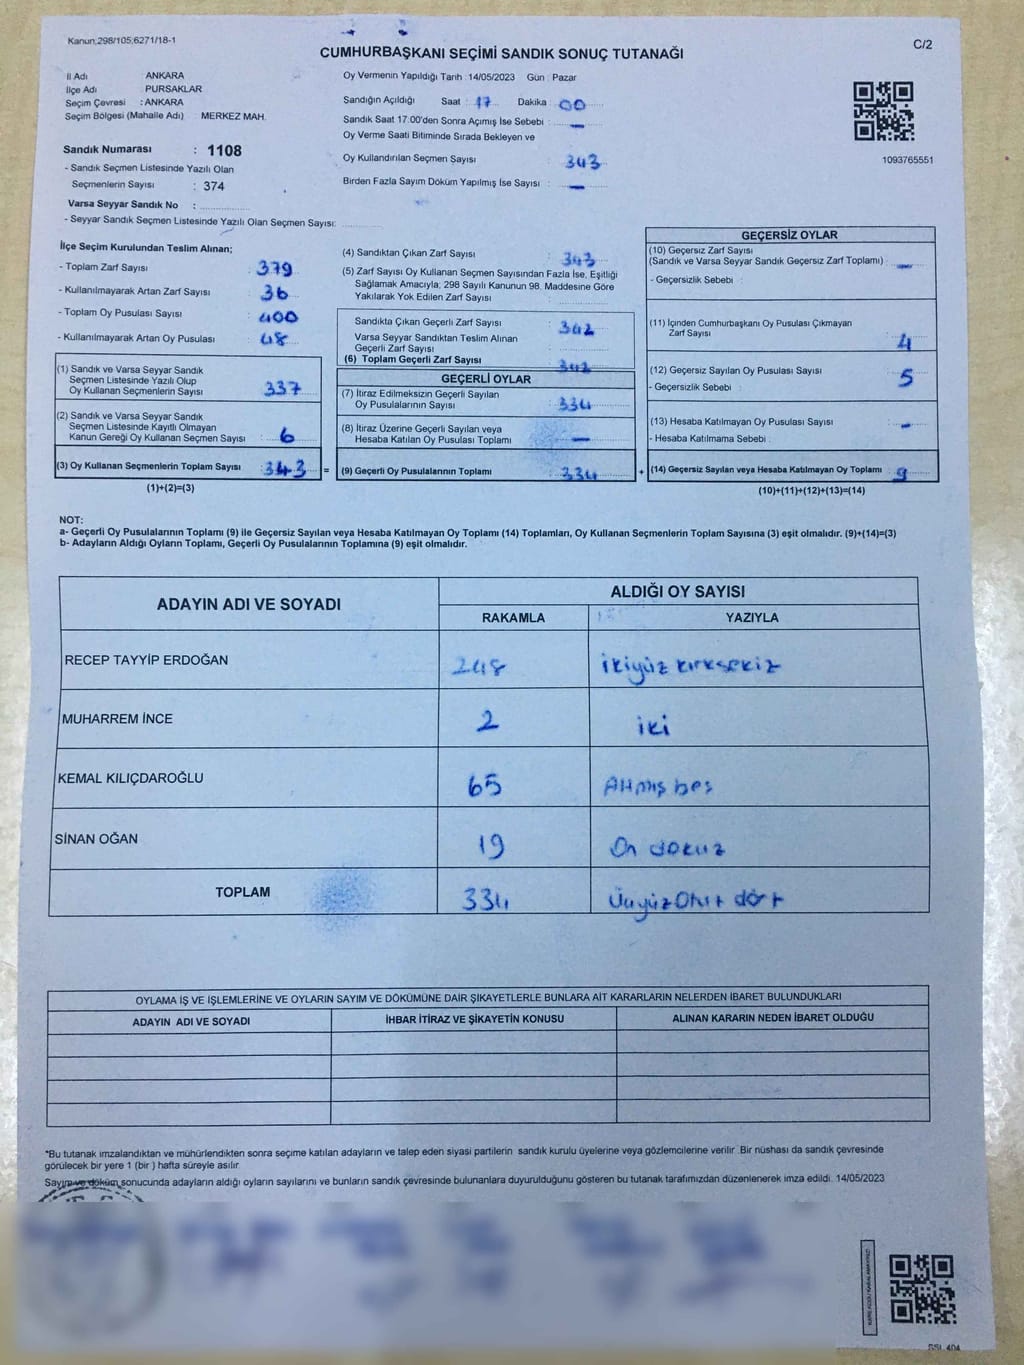 Kanun;298/105;6271/18-1
C/2
CUMHURBAŞKANI SEÇİMİ SANDIK SONUÇ TUTANAĞI
İl Adı : ANKARA
İlçe Adı : PURSAKLAR
Seçim Çevresi : ANKARA
Seçim Bölgesi (Mahalle Adı) MERKEZ MAH.
Sandık Numarası : 1108
- Sandık Seçmen Listesinde Yazılı Olan
Seçmenlerin Sayısı : 374
Varsa Seyyar Sandık No :
- Seyyar Sandık Seçmen Listesinde Yazılı Olan Seçmen Sayısı:
Oy Vermenin Yapıldığı Tarih : 14/05/2023 Gün : Pazar
Sandığın Açıldığı Saat : 17 Dakika : 00
Sandık Saat 17:00'den Sonra Açımış İse Sebebi : —
Oy Verme Saati Bitiminde Sırada Bekleyen ve
Oy Kullandırılan Seçmen Sayısı : 343
Birden Fazla Sayım Döküm Yapılmış İse Sayısı : —
1093765551
İlçe Seçim Kurulundan Teslim Alınan;
- Toplam Zarf Sayısı : 379
- Kullanılmayarak Artan Zarf Sayısı : 36
- Toplam Oy Pusulası Sayısı : 400
- Kullanılmayarak Artan Oy Pusulası : 48
(1) Sandık ve Varsa Seyyar Sandık
Seçmen Listesinde Yazılı Olup
Oy Kullanan Seçmenlerin Sayısı : 337
(2) Sandık ve Varsa Seyyar Sandık
Seçmen Listesinde Kayıtlı Olmayan
Kanun Gereği Oy Kullanan Seçmen Sayısı : 6
(3) Oy Kullanan Seçmenlerin Toplam Sayısı : 343 =
(1)+(2)=(3)
(4) Sandıktan Çıkan Zarf Sayısı : 343
(5) Zarf Sayısı Oy Kullanan Seçmen Sayısından Fazla İse, Eşitliği
Sağlamak Amacıyla; 298 Sayılı Kanunun 98. Maddesine Göre
Yakılarak Yok Edilen Zarf Sayısı :
Sandıkta Çıkan Geçerli Zarf Sayısı : 342
Varsa Seyyar Sandıktan Teslim Alınan
Geçerli Zarf Sayısı :
(6) Toplam Geçerli Zarf Sayısı : 342
GEÇERLİ OYLAR
(7) İtiraz Edilmeksizin Geçerli Sayılan
Oy Pusulalarının Sayısı : 334
(8) İtiraz Üzerine Geçerli Sayılan veya
Hesaba Katılan Oy Pusulası Toplamı : —
(9) Geçerli Oy Pusulalarının Toplamı : 334 +
GEÇERSİZ OYLAR
(10) Geçersiz Zarf Sayısı
(Sandık ve Varsa Seyyar Sandık Geçersiz Zarf Toplamı) : —
- Geçersizlik Sebebi :
(11) İçinden Cumhurbaşkanı Oy Pusulası Çıkmayan
Zarf Sayısı : 4
(12) Geçersiz Sayılan Oy Pusulası Sayısı : 5
- Geçersizlik Sebebi :
(13) Hesaba Katılmayan Oy Pusulası Sayısı : -
- Hesaba Katılmama Sebebi :
(14) Geçersiz Sayılan veya Hesaba Katılmayan Oy Toplamı : 9
(10)+(11)+(12)+(13)=(14)
NOT:
a- Geçerli Oy Pusulalarının Toplamı (9) ile Geçersiz Sayılan veya Hesaba Katılmayan Oy Toplamı (14) Toplamları, Oy Kullanan Seçmenlerin Toplam Sayısına (3) eşit olmalıdır. (9)+(14)=(3)
b- Adayların Aldığı Oyların Toplamı, Geçerli Oy Pusulalarının Toplamına (9) eşit olmalıdır.
ADAYIN ADI VE SOYADI
ALDIĞI OY SAYISI
RAKAMLA YAZIYLA
RECEP TAYYİP ERDOĞAN 248 ikiyüz kırksekiz
MUHARREM İNCE 2 iki
KEMAL KILIÇDAROĞLU 65 Altmış beş
SİNAN OĞAN 19 On dokuz
TOPLAM 334 Üçyüz Otuz dört
OYLAMA İŞ VE İŞLEMLERİNE VE OYLARIN SAYIM VE DÖKÜMÜNE DAİR ŞİKAYETLERLE BUNLARA AİT KARARLARIN NELERDEN İBARET BULUNDUKLARI
ADAYIN ADI VE SOYADI İHBAR İTİRAZ VE ŞİKAYETİN KONUSU ALINAN KARARIN NEDEN İBARET OLDUĞU
*Bu tutanak imzalandıktan ve mühürlendikten sonra seçime katılan adayların ve talep eden siyasi partilerin sandık kurulu üyelerine veya gözlemcilerine verilir. Bir nüshası da sandık çevresinde
görülecek bir yere 1 (bir ) hafta süreyle asılır.
Sayım ve döküm sonucunda adayların aldığı oyların sayılarını ve bunların sandık çevresinde bulunanlara duyurulduğunu gösteren bu tutanak tarafımızdan düzenlenerek imza edildi. 14/05/2023